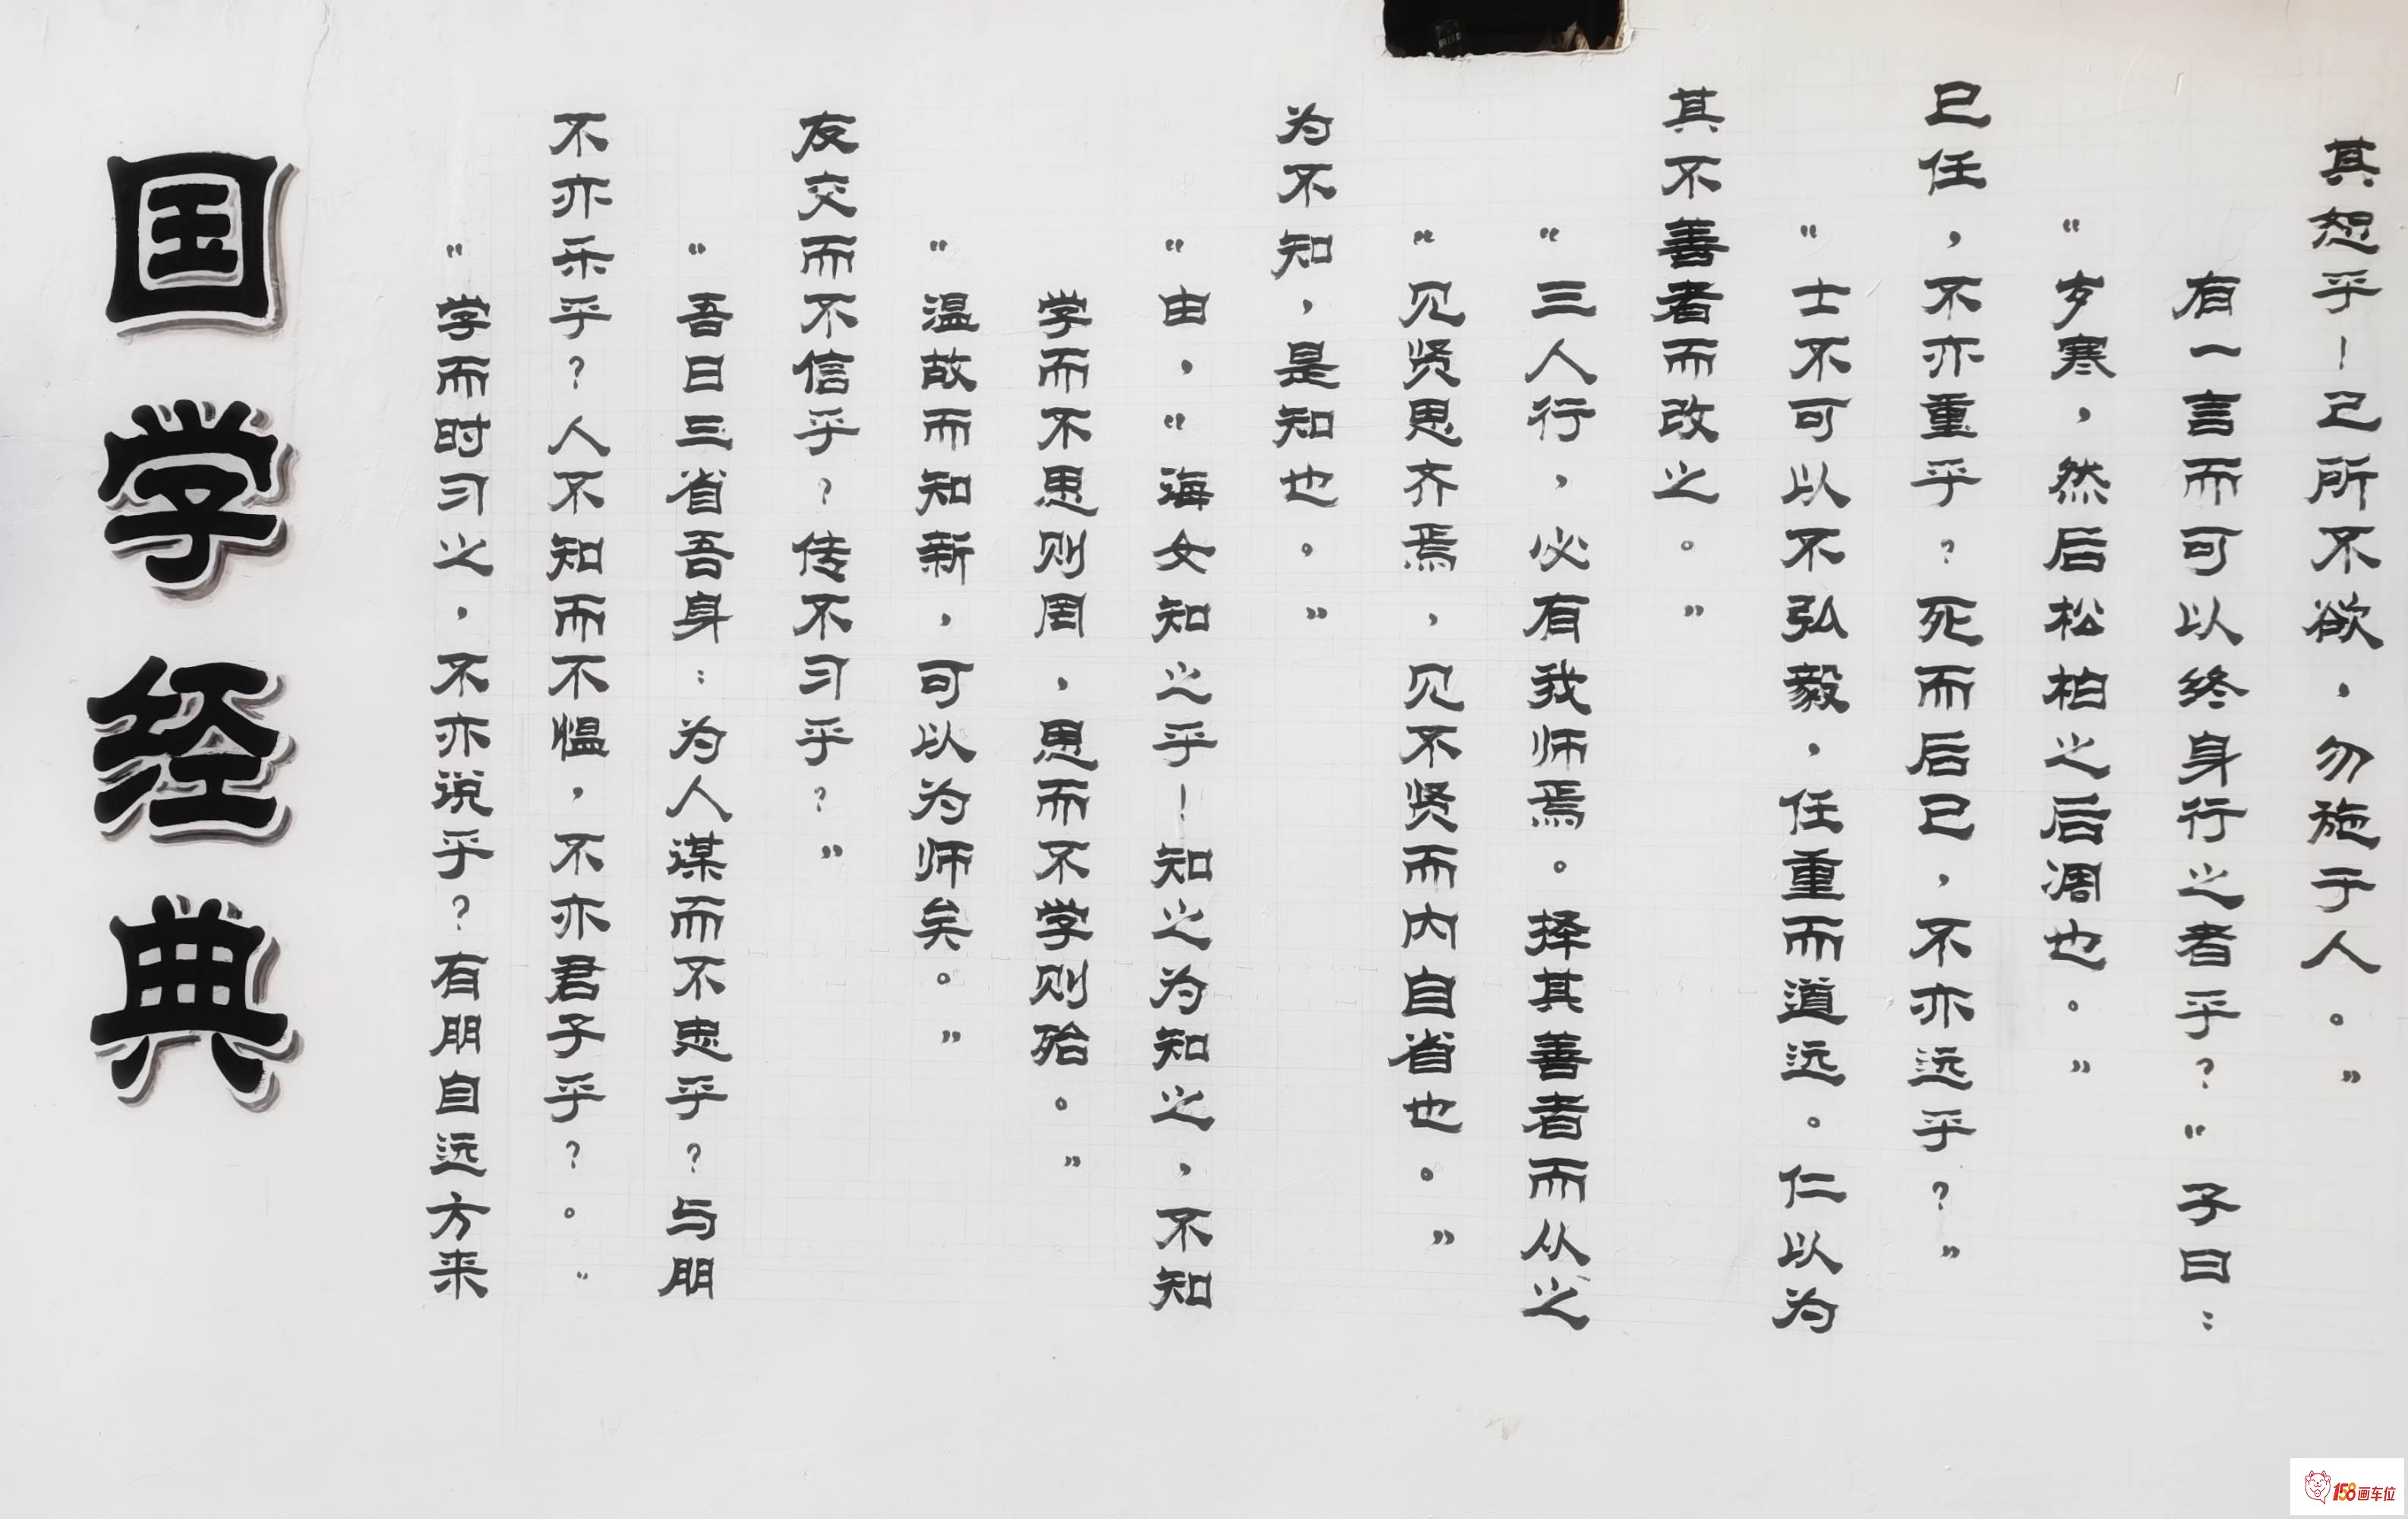 国学经典
“学而时习之，不亦说乎？有朋自远方来
不亦乐乎？人不知而不愠，不亦君子乎？。“
“吾日三省吾身：为人谋而不忠乎？与朋
友交而不信乎？传不习乎？”
“温故而知新，可以为师矣。”
学而不思则罔，思而不学则殆。”
“由，“海女知之乎！知之为知之，不知
为不知，是知也。”
“见贤思齐焉，见不贤而内自省也。”
“三人行，必有我师焉。择其善者而从之
其不善者而改之。”
“士不可以不弘毅，任重而道远。仁以为
已任，不亦重乎？死而后已，不亦远乎？”
“岁寒，然后松柏之后凋也。”
有一言而可以终身行之者乎？“子曰：
其恕乎！己所不欲，勿施于人。”
158画车位